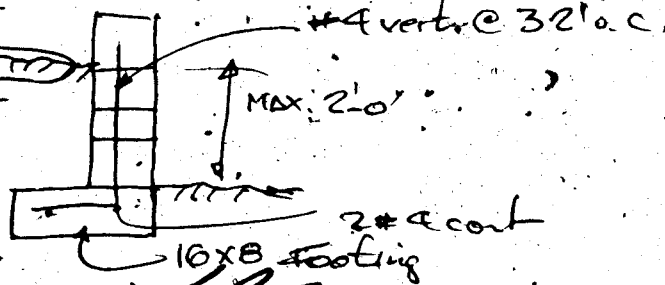 #4 vert. @ 32" o.c.
MAX. 2'-0"
2 #4 cont
16x8 Footing